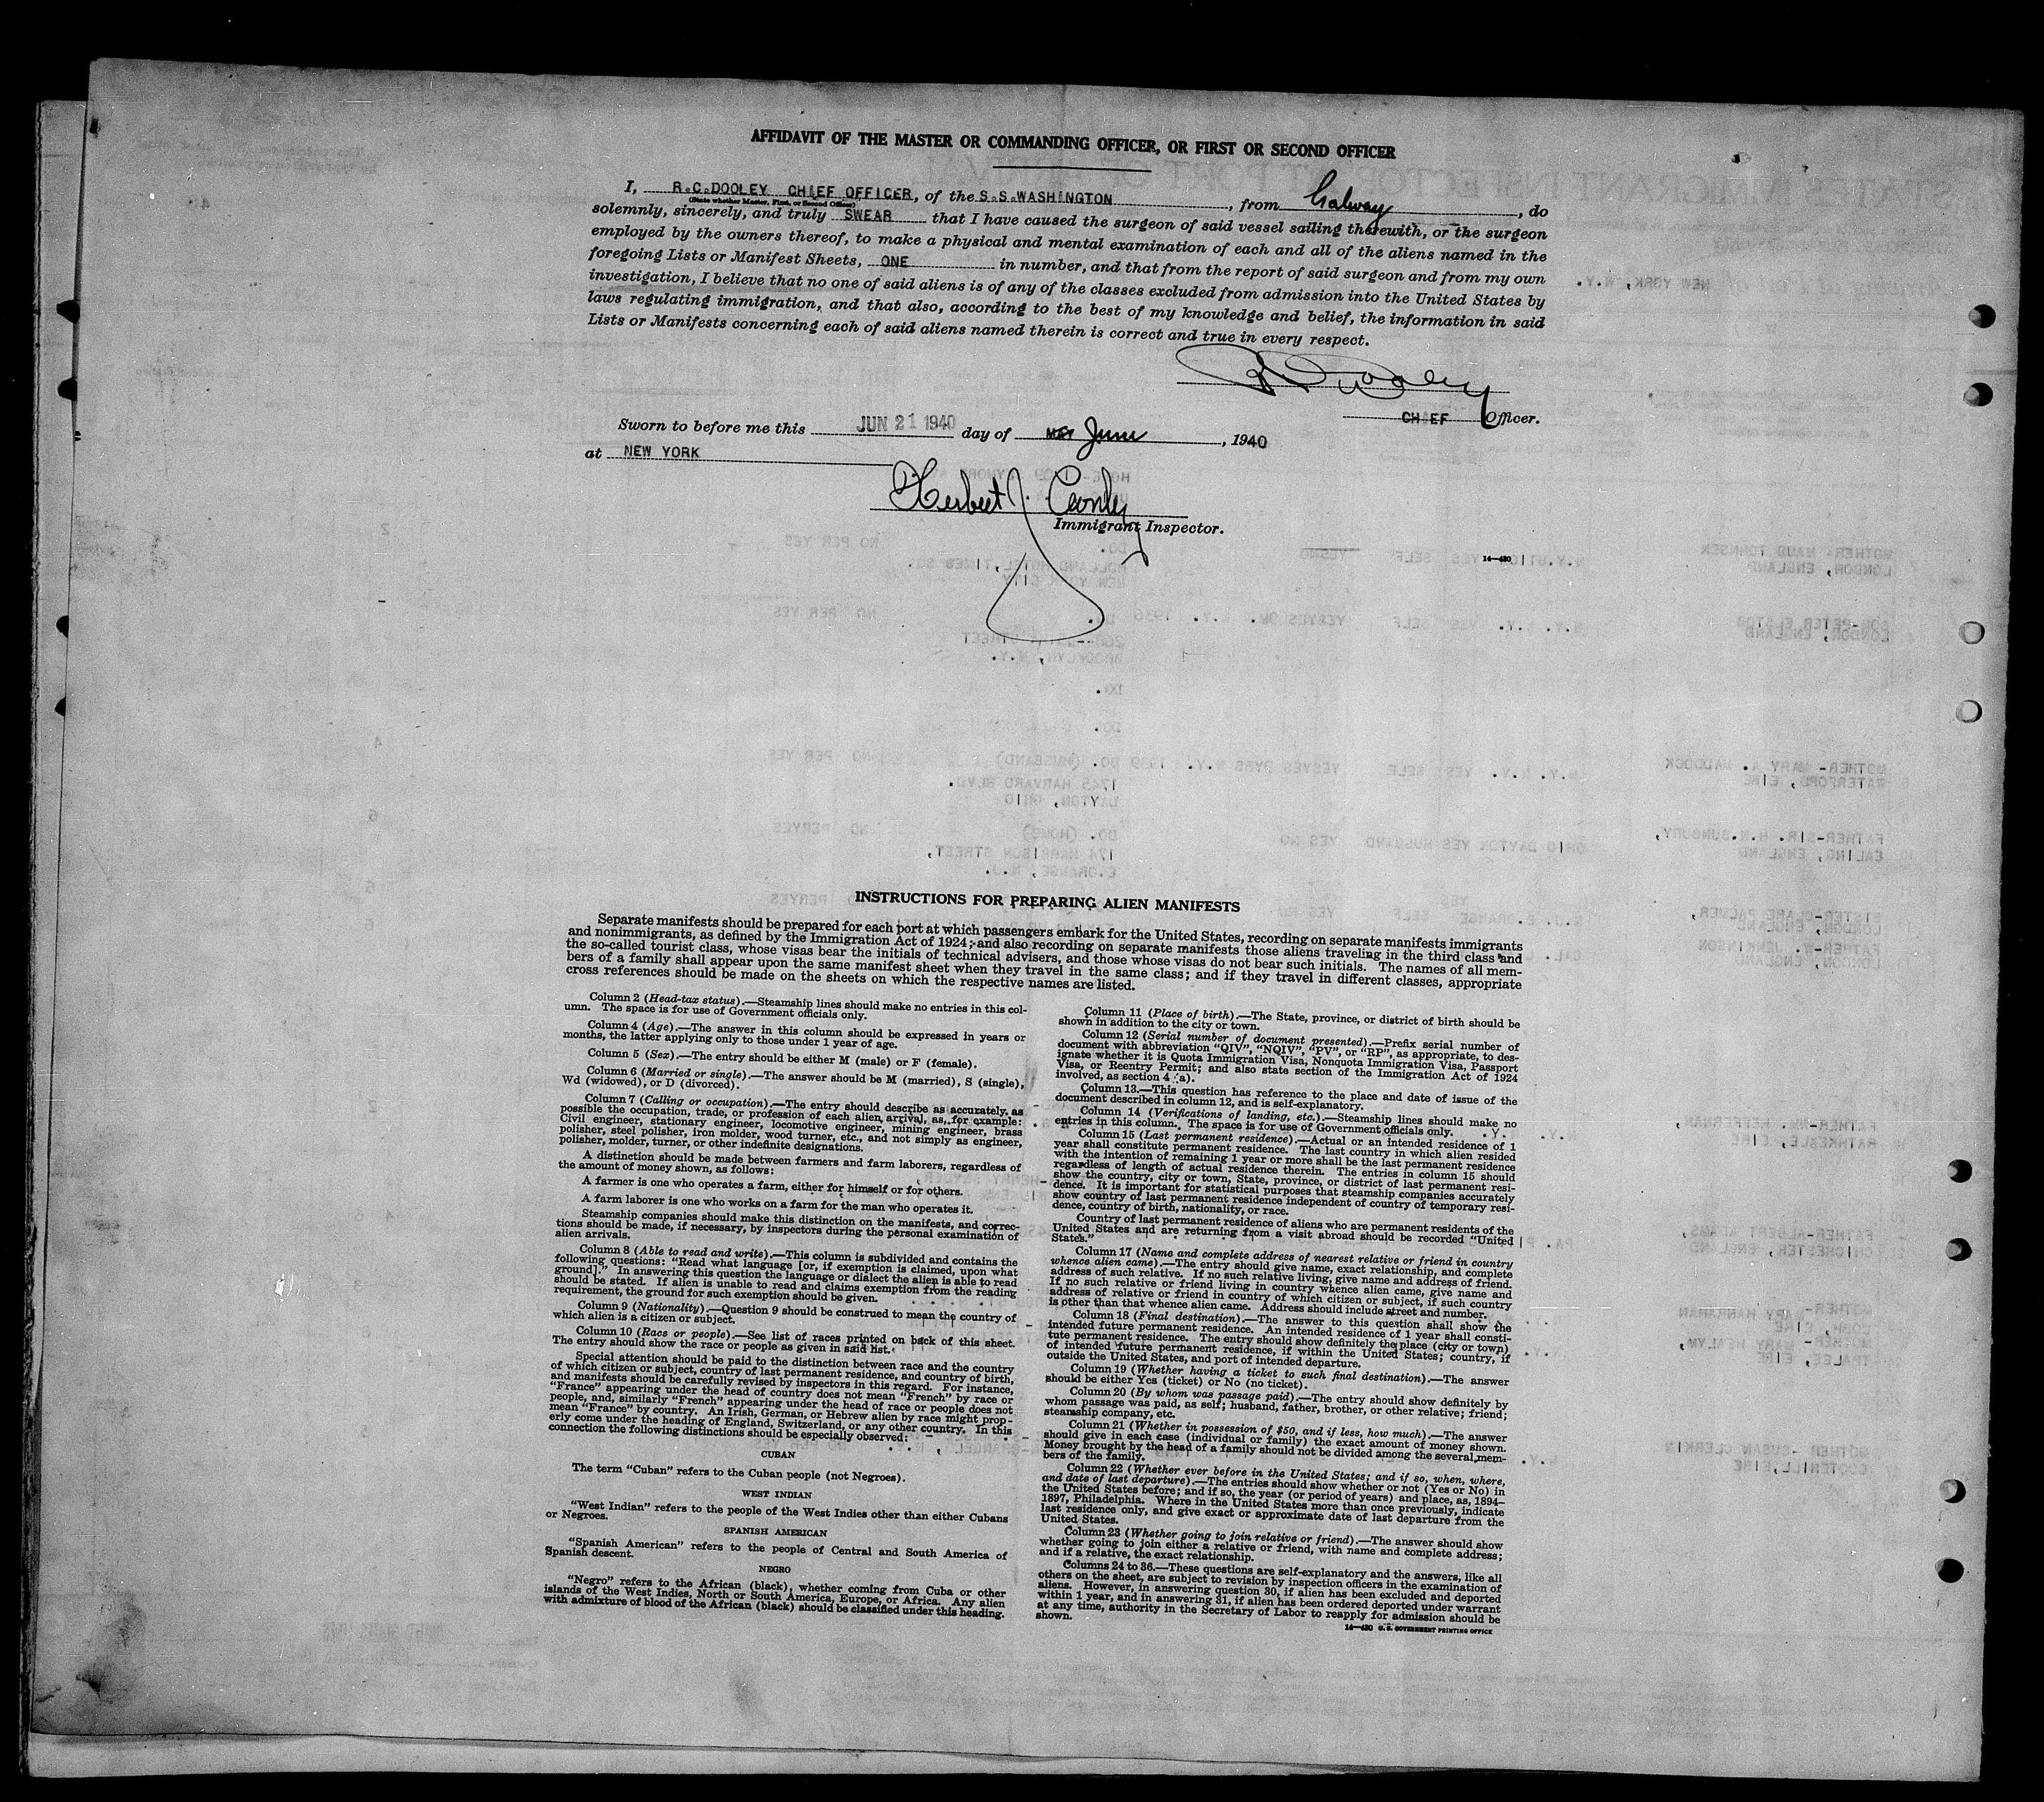 AFFIDAVIT OF THE MASTER OR COMMANDING OFFICER, OR FIRST OR SECOND OFFICER
I, R.C.DOOLEY CHIEF OFFICER, of the S.S.WASHINGTON, from Galway, do
(State whether Master, First, or Second Officer)
solemnly, sincerely, and truly SWEAR that I have caused the surgeon of said vessel sailing therewith, or the surgeon
employed by the owners thereof, to make a physical and mental examination of each and all of the aliens named in the
foregoing Lists or Manifest Sheets, ONE in number, and that from the report of said surgeon and from my own
investigation, I believe that no one of said aliens is of any of the classes excluded from admission into the United States by
laws regulating immigration, and that also, according to the best of my knowledge and belief, the information in said
Lists or Manifests concerning each of said aliens named therein is correct and true in every respect.
R. Dooley
CHIEF Officer.
Sworn to before me this JUN 21 1940 day of June, 1940
at NEW YORK
Herbert J.
Immigrant Inspector.
14—430
INSTRUCTIONS FOR PREPARING ALIEN MANIFESTS
Separate manifests should be prepared for each port at which passengers embark for the United States, recording on separate manifests immigrants
and nonimmigrants, as defined by the Immigration Act of 1924; and also recording on separate manifests those aliens traveling in the third class and
the so-called tourist class, whose visas bear the initials of technical advisers, and those whose visas do not bear such initials. The names of all mem-
bers of a family shall appear upon the same manifest sheet when they travel in the same class; and if they travel in different classes, appropriate
cross references should be made on the sheets on which the respective names are listed.
Column 2 (Head-tax status).—Steamship lines should make no entries in this col-
umn. The space is for use of Government officials only.
Column 4 (Age).—The answer in this column should be expressed in years or
months, the latter applying only to those under 1 year of age.
Column 5 (Sex).—The entry should be either M (male) or F (female).
Column 6 (Married or single).—The answer should be M (married), S (single),
Wd (widowed), or D (divorced).
Column 7 (Calling or occupation).—The entry should describe as accurately as
possible the occupation, trade, or profession of each alien arrival, as, for example:
Civil engineer, stationary engineer, locomotive engineer, mining engineer, brass
polisher, steel polisher, iron molder, wood turner, etc., and not simply as engineer,
polisher, molder, turner, or other indefinite designations.
A distinction should be made between farmers and farm laborers, regardless of
the amount of money shown, as follows:
A farmer is one who operates a farm, either for himself or for others.
A farm laborer is one who works on a farm for the man who operates it.
Steamship companies should make this distinction on the manifests, and correc-
tions should be made, if necessary, by inspectors during the personal examination of
alien arrivals.
Column 8 (Able to read and write).—This column is subdivided and contains the
following questions: "Read what language [or, if exemption is claimed, upon what
ground]." In answering this question the language or dialect the alien is able to read
should be stated. If alien is unable to read and claims exemption from the reading
requirement, the ground for such exemption should be given.
Column 9 (Nationality).—Question 9 should be construed to mean the country of
which alien is a citizen or subject.
Column 10 (Race or people).—See list of races printed on back of this sheet.
The entry should show the race or people as given in said list.
Special attention should be paid to the distinction between race and the country
of which citizen or subject, country of last permanent residence, and country of birth,
and manifests should be carefully revised by inspectors in this regard. For instance,
"France" appearing under the head of country does not mean "French" by race or
people, and, similarly "French" appearing under the head of race or people does not
mean "France" by country. An Irish, German, or Hebrew alien by race might prop-
erly come under the heading of England, Switzerland, or any other country. In this
connection the following distinctions should be especially observed:
CUBAN
The term "Cuban" refers to the Cuban people (not Negroes).
WEST INDIAN
"West Indian" refers to the people of the West Indies other than either Cubans
or Negroes.
SPANISH AMERICAN
"Spanish American" refers to the people of Central and South America of
Spanish descent.
NEGRO
"Negro" refers to the African (black), whether coming from Cuba or other
islands of the West Indies, North or South America, Europe, or Africa. Any alien
with admixture of blood of the African (black) should be classified under this heading.
Column 11 (Place of birth).—The State, province, or district of birth should be
shown in addition to the city or town.
Column 12 (Serial number of document presented).—Prefix serial number of
document with abbreviation "QIV", "NQIV", "PV", or "RP", as appropriate, to des-
ignate whether it is Quota Immigration Visa, Nonquota Immigration Visa, Passport
Visa, or Reentry Permit; and also state section of the Immigration Act of 1924
involved, as section 4 (a).
Column 13.—This question has reference to the place and date of issue of the
document described in column 12, and is self-explanatory.
Column 14 (Verifications of landing, etc.).—Steamship lines should make no
entries in this column. The space is for use of Government officials only.
Column 15 (Last permanent residence).—Actual or an intended residence of 1
year shall constitute permanent residence. The last country in which alien resided
with the intention of remaining 1 year or more shall be the last permanent residence
regardless of length of actual residence therein. The entries in column 15 should
show the country, city or town, State, province, or district of last permanent resi-
dence. It is important for statistical purposes that steamship companies accurately
show country of last permanent residence independent of country of temporary resi-
dence, country of birth, nationality, or race.
Country of last permanent residence of aliens who are permanent residents of the
United States and are returning from a visit abroad should be recorded "United
States."
Column 17 (Name and complete address of nearest relative or friend in country
whence alien came).—The entry should give name, exact relationship, and complete
address of such relative. If no such relative living, give name and address of friend.
If no such relative or friend living in country whence alien came, give name and
address of relative or friend in country of which citizen or subject, if such country
is other than that whence alien came. Address should include street and number.
Column 18 (Final destination).—The answer to this question shall show the
intended future permanent residence. An intended residence of 1 year shall consti-
tute permanent residence. The entry should show definitely the place (city or town)
of intended future permanent residence, if within the United States; country, if
outside the United States, and port of intended departure.
Column 19 (Whether having a ticket to such final destination).—The answer
should be either Yes (ticket) or No (no ticket).
Column 20 (By whom was passage paid).—The entry should show definitely by
whom passage was paid, as self; husband, father, brother, or other relative; friend;
steamship company, etc.
Column 21 (Whether in possession of $50, and if less, how much).—The answer
should give in each case (individual or family) the exact amount of money shown.
Money brought by the head of a family should not be divided among the several mem-
bers of the family.
Column 22 (Whether ever before in the United States; and if so, when, where,
and date of last departure).—The entries should show whether or not (Yes or No) in
the United States before; and if so, the year (or period of years) and place, as, 1894–
1897, Philadelphia. Where in the United States more than once previously, indicate
last residence only, and give exact or approximate date of last departure from the
United States.
Column 23 (Whether going to join relative or friend).—The answer should show
whether going to join either a relative or friend, with name and complete address;
and if a relative, the exact relationship.
Columns 24 to 36.—These questions are self-explanatory and the answers, like all
others on the sheet, are subject to revision by inspection officers in the examination of
aliens. However, in answering question 30, if alien has been excluded and deported
within 1 year, and in answering 31, if alien has been ordered deported under warrant
at any time, authority in the Secretary of Labor to reapply for admission should be
shown.
14—430 U. S. GOVERNMENT PRINTING OFFICE